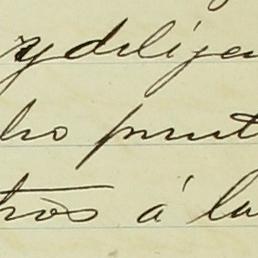 y delijen
ho punt
tros á la